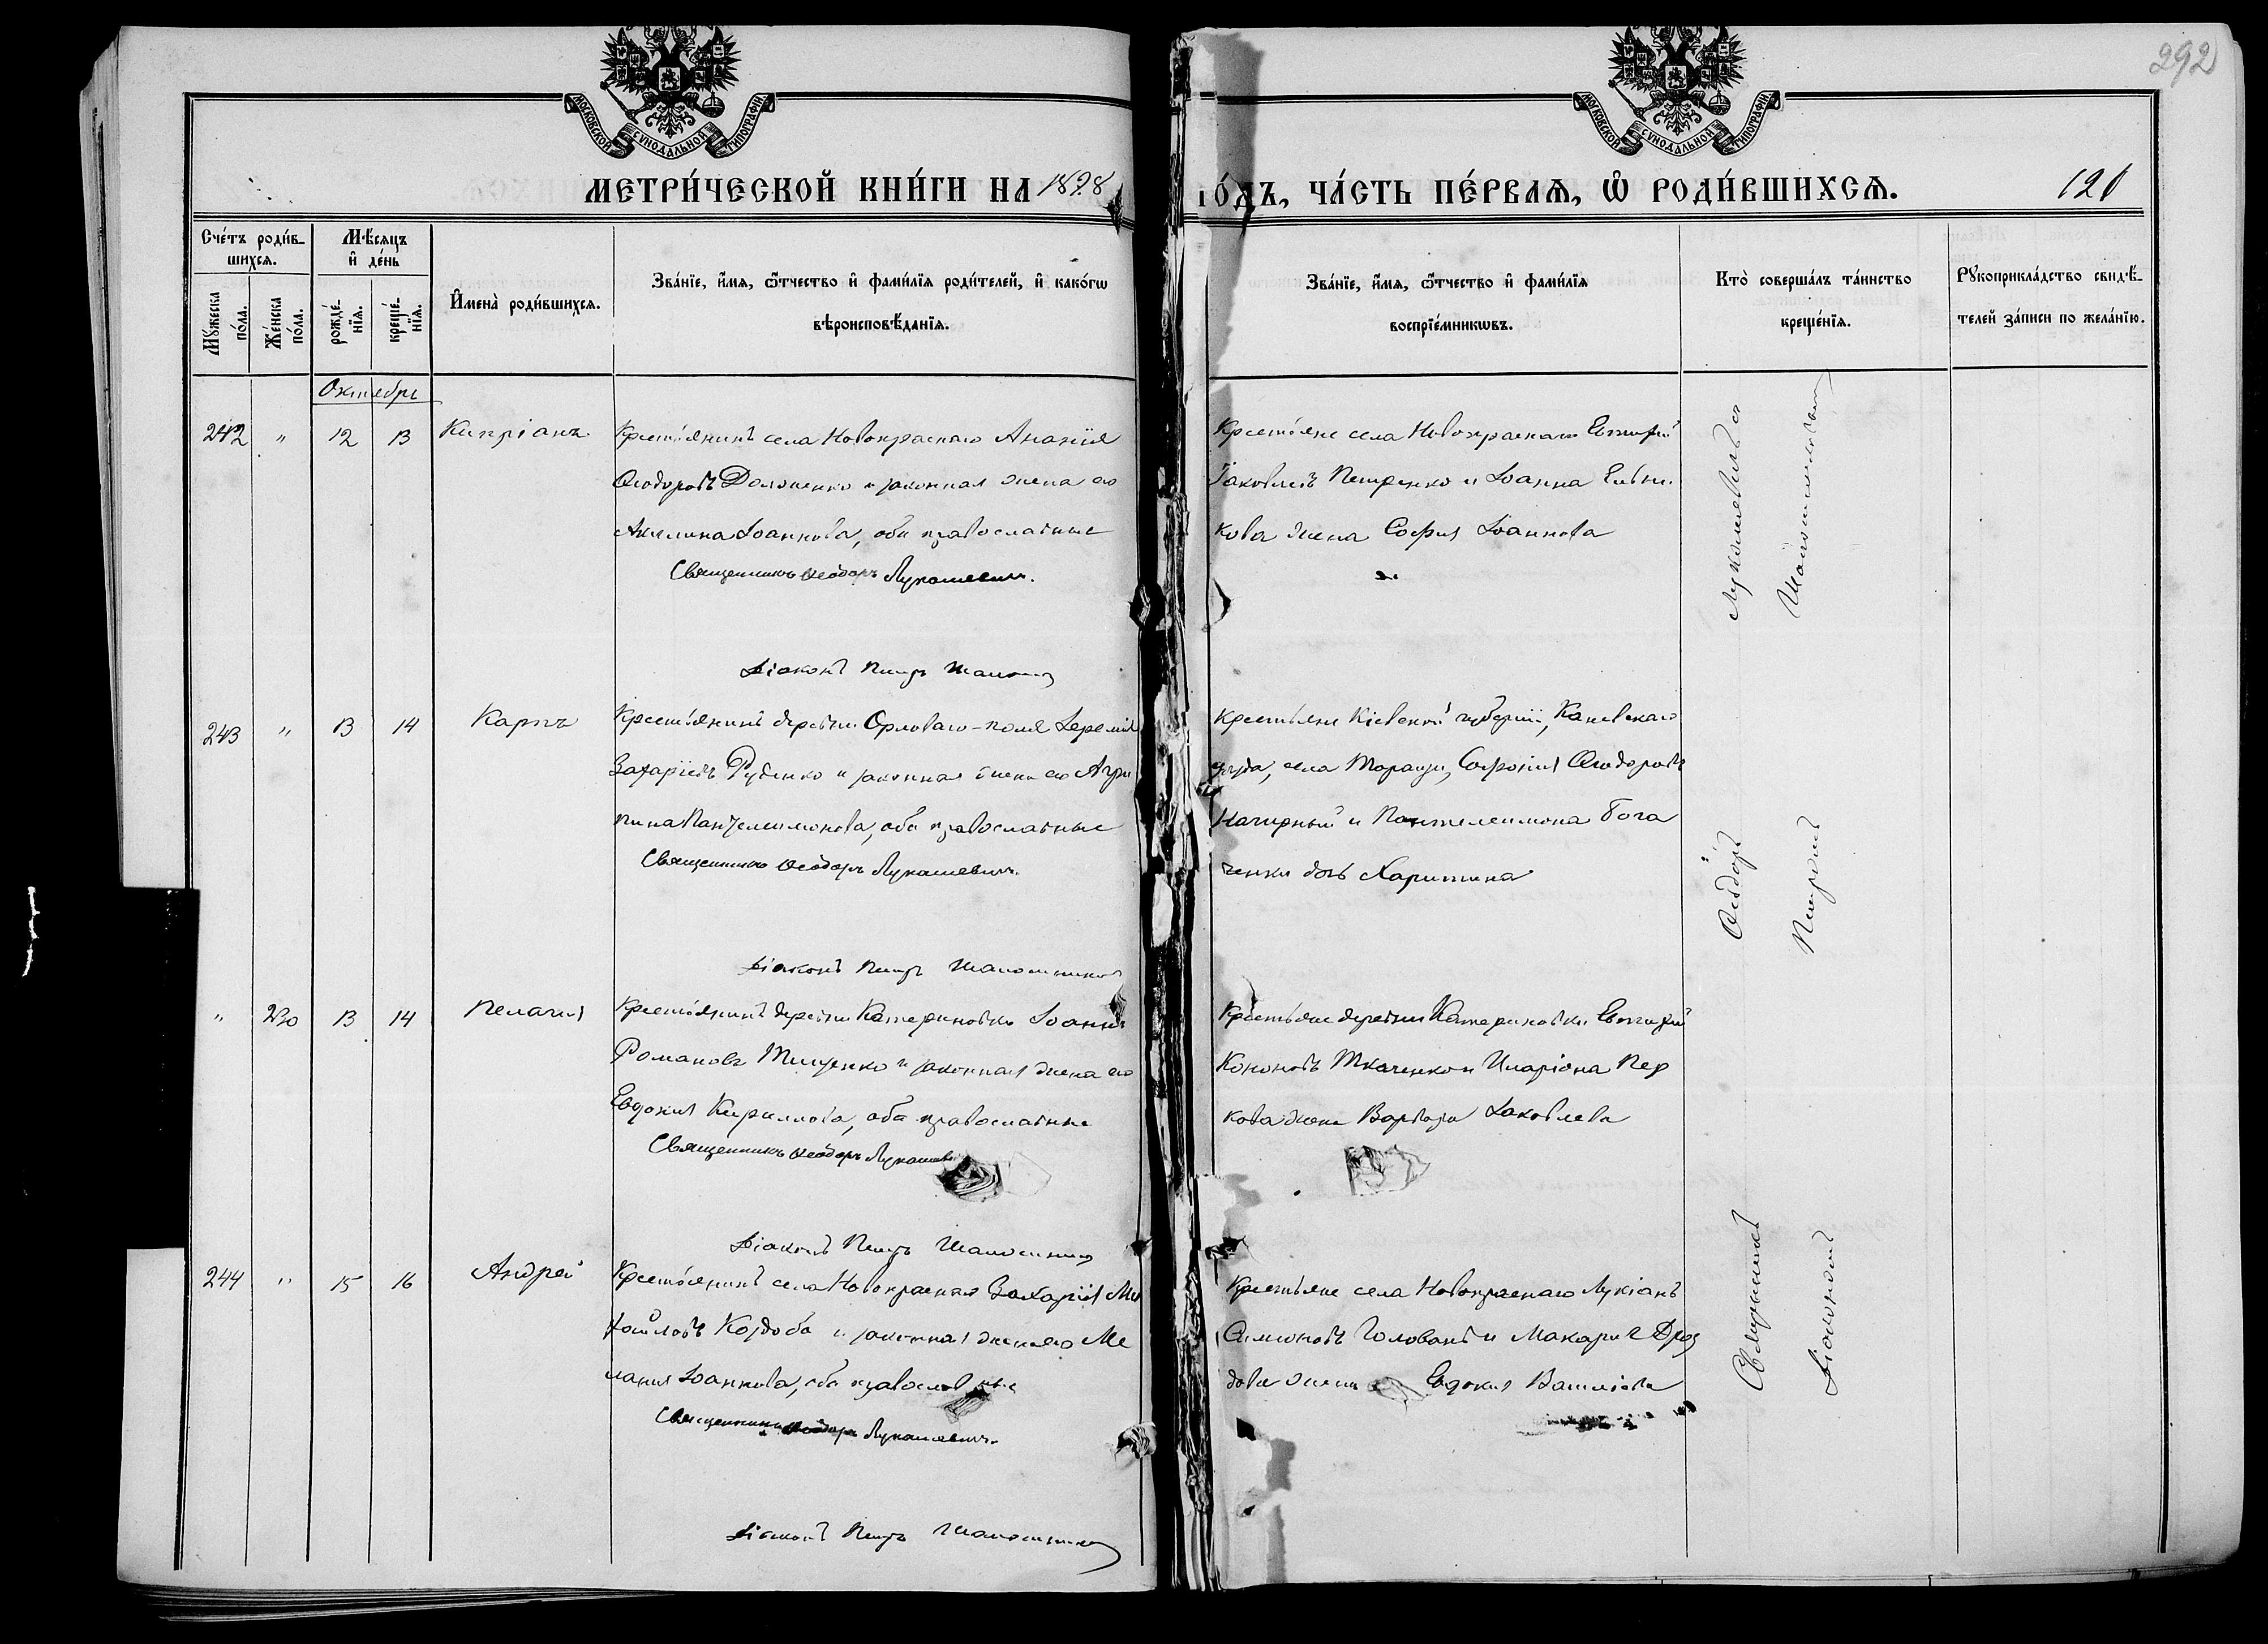 292
МОСКОВСКОЙ СѴНОДАЛЬНОЙ ТИПОГРАФІИ.
МОСКОВСКОЙ СѴНОДАЛЬНОЙ ТИПОГРАФІИ.
МЕТРИ́ЧЕСКОЙ КНИ́ГИ НА 1898
ГО́ДЪ, ЧА́СТЬ ПЕ́РВАѦ, Ѡ҆ РОДИ́ВШИХСѦ.
121
Сче́тъ роди́в-
шихсѧ.
Мꙋжеска по́ла.
Же́нска по́ла.
Мѣ́сѧцъ
и҆ де́нь
рожде́-
нїѧ.
креще́-
нїѧ.
И҆мена̀ роди́вшихсѧ.
Зва́нїе, и҆́мѧ, ѻ҆́тчество и҆ фами́лїѧ роди́телей, и҆ како́гѡ
вѣроисповѣ́данїѧ.
Зва́нїе, и҆́мѧ, ѻ҆́тчество и҆ фами́лїѧ
воспрїе́мникѡвъ.
Кто̀ соверша́лъ та́инство
креще́нїѧ.
Рꙋкоприкла́дство свидѣ́-
телей за́писи по жела́нїю.
Октябрь
242 " 12 13 Кипріанъ
Крестьянинъ села Новокраснаго Ананія
Ѳеодоровъ и законная жена его
Акилина Іоаннова, оба православные
Священникъ Ѳеодоръ Лукашевичъ.
Діаконъ Петръ
Крестьяне села Новокраснаго Евтихій
Іаковлевъ Петренко и Іоанна
кова жена Софія Іоаннова
243 " 13 14 Карпъ
Крестьянинъ деревни Орловаго-поля Іеремія
Захаріевъ Рубенко и законная жена его Агри
пина Пантелеимонова, оба православные
Священникъ Ѳеодоръ Лукашевичъ.
Діаконъ Петръ Шапошников
Крестьяне Кіевской губерніи, Каневскаго
уѣзда, села Софроній Ѳеодоровъ
и Пантелеимона Бога
ченки дочь Харитина
" 230 13 14 Пелагія
Крестьянинъ деревни Катериновки Іоаннъ
Романовъ Тищенко и законная жена его
Евдокія Кириллова, оба православные
Священникъ Ѳеодоръ Лукашеви
Діаконъ Петръ Шапошников
Крестьяне деревни Катериновки Евтихій
Кононовъ Ткаченко и Иларіона Пер
кова жена Варвара Іаковлева
244 " 15 16 Андрей
Крестьянинъ села Новокраснаго Захарія Ми
хайловъ Коздоба и законная жена его Ме
ланія Іоаннова, оба православные
Священникъ Ѳеодоръ Лукашевичъ.
Діаконъ Петръ Шапошников
Крестьяне села Новокраснаго Лукіанъ
Симоновъ Голованъ и Макарія Дроз
дова жена Евдокія
Священникъ Ѳеодоръ Лукашевичъ
Діаконъ Петръ Шапошников